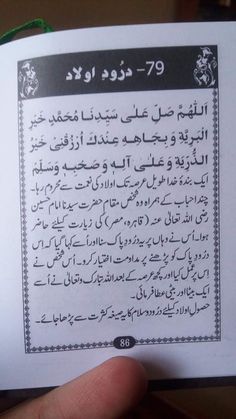 79- درُودِ اولاد
اَللّٰهُمَّ صَلِّ عَلٰى سَيِّدِنَا مُحَمَّدٍ خَيْرِ
الْبَرِيَّةِ وَبِجَاهِهٖ عِنْدَكَ اُرْزُقْنِىْ خَيْرَ
الذُّرِّيَّةِ وَعَلٰى اٰلِهٖ وَصَحْبِهٖ وَسَلِّمْ
ایک بندۂ خدا طویل عرصہ تک اولاد کی نعمت سے محروم رہا۔
چند احباب کے ہمراہ وہ شخص مقام حضرت سیدنا امام حسین
رضی اللہ تعالیٰ عنہ (قاہرہ، مصر) کی زیارت کیلئے حاضر
ہوا۔ اُس نے وہاں پر یہ درُودِ پاک سنا اور اُسے کہا گیا کہ اس
درُودِ پاک کو پڑھنے پر مداومت اختیار کرو۔ اُس شخص نے
اس پر عمل کیا اور کچھ عرصہ کے بعد اللہ تبارک وتعالیٰ نے اُسے
ایک بیٹا اور بیٹی عطا فرمائی۔
حصولِ اولاد کیلئے درُود و سلام کا یہ صیغہ کثرت سے پڑھا جائے۔
86